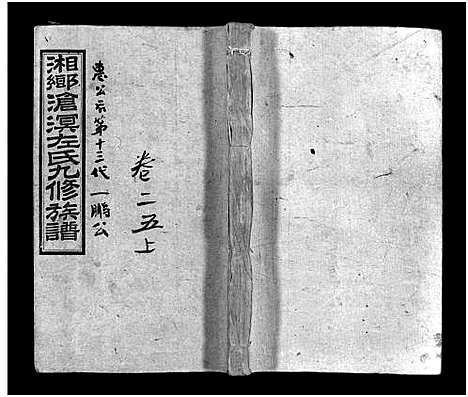 湘鄉滄溟左氏九修族譜
惠公示第十三代一鵬公
卷二五上